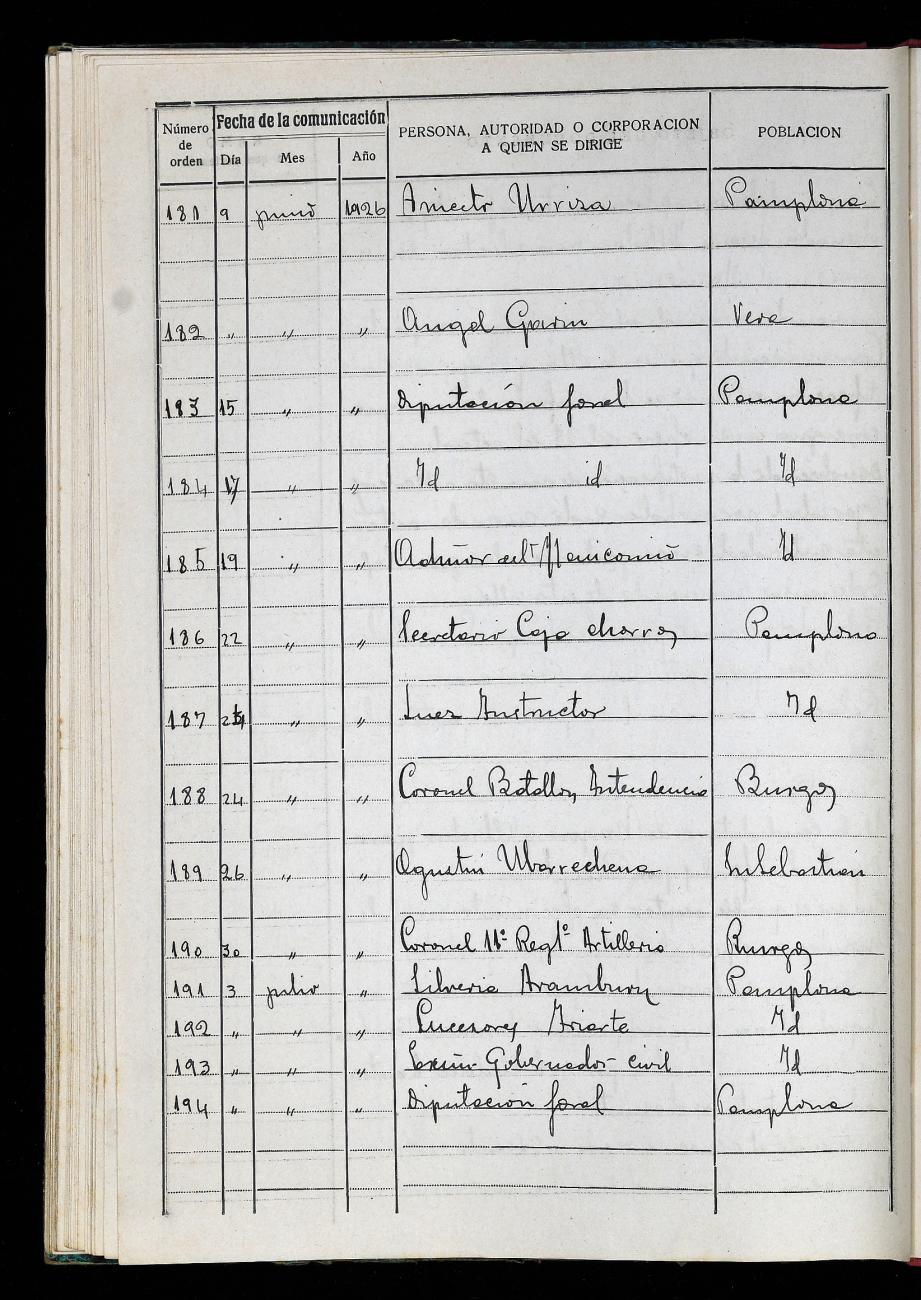 Número de orden Fecha de la comunicación Día Mes Año PERSONA, AUTORIDAD O CORPORACION A QUIEN SE DIRIGE POBLACION
181 9 junio 1926 Aniceto Urriza Pamplona
182 " " " Angel Garin Vera
183 15 " " Diputación foral Pamplona
184 17 " " Id id Id
185 19 " " Admor del Manicomio Id
186 22 " " Secretario Caja Ahorros Pamplona
187 " " Juez Instructor Id
188 24 " " Coronel Batallon Intendencia Burgos
189 26 " " Agustin Ubarrechena Sn Sebastian
190 30 " " Coronel 11º Regtº Artilleria Burgos
191 3 julio " Silverio Aramburu Pamplona
192 " " " Sucesores Iriarte Id
193 " " " Excmo Gobernador civil Id
194 " " " Diputación foral Pamplona